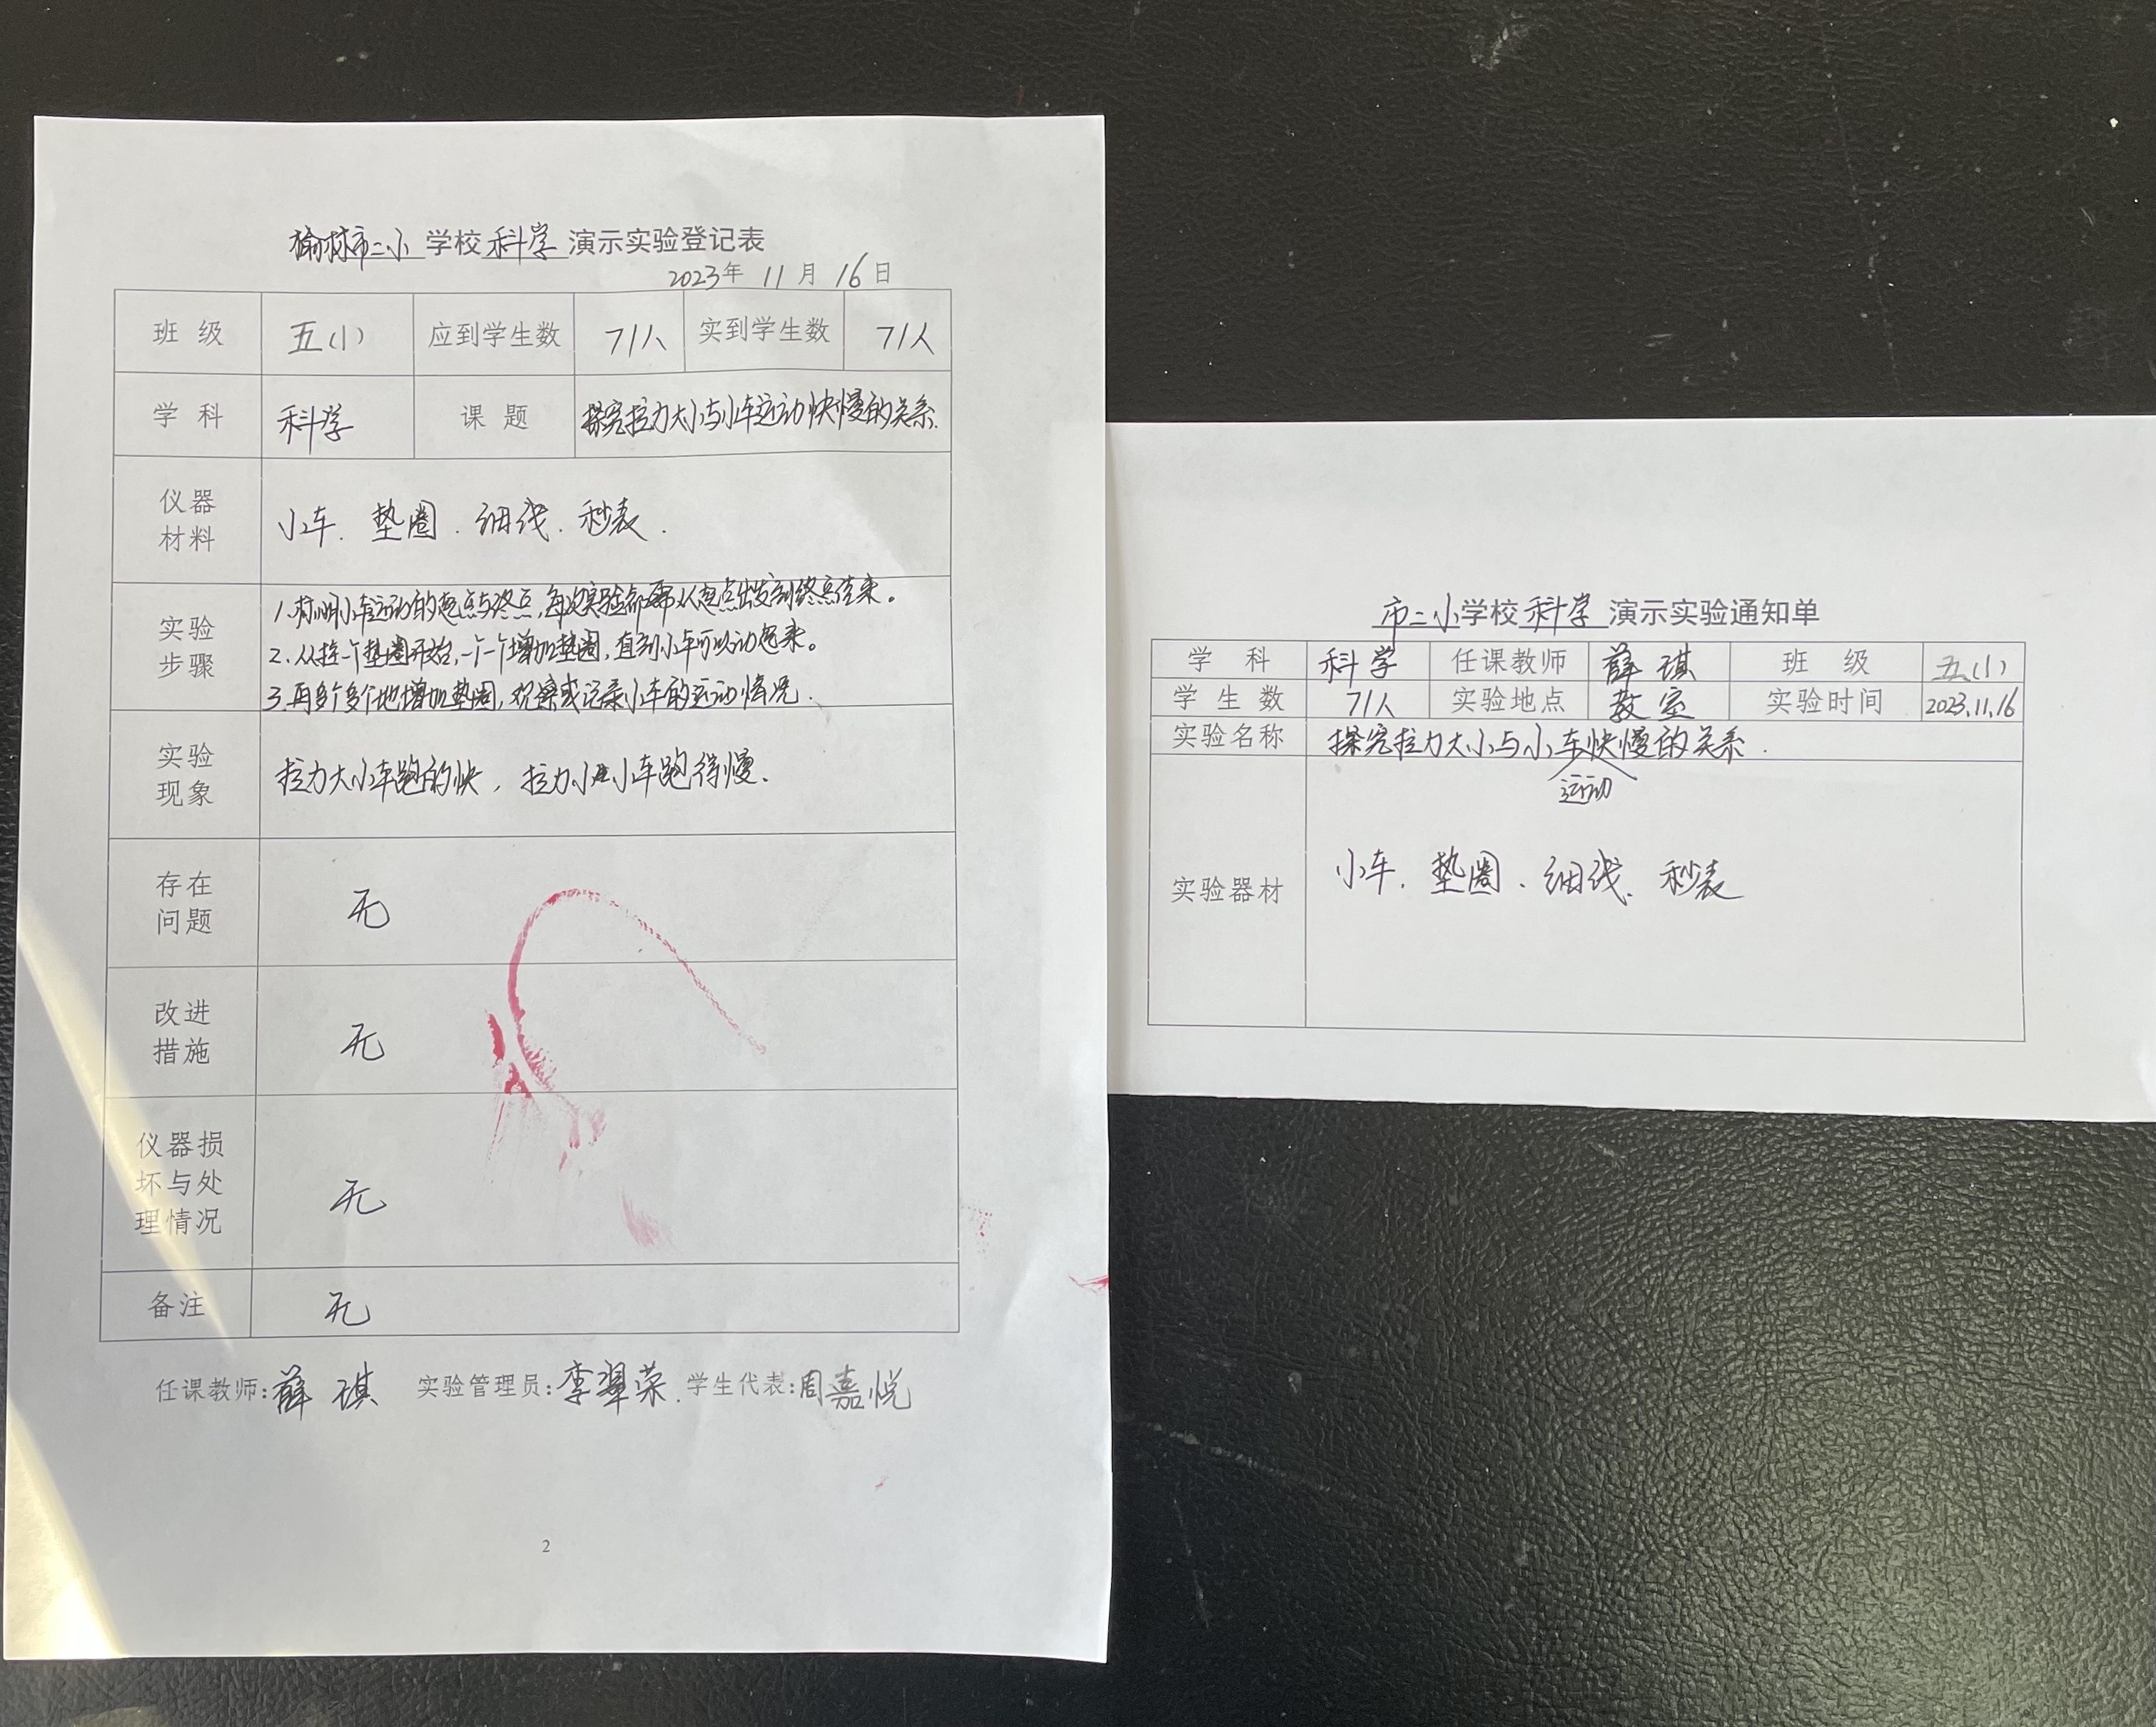 榆林市二小 学校 科学 演示实验登记表
2023年 11 月 16 日
班 级 五(1) 应到学生数 71人 实到学生数 71人
学 科 科学 课 题 探究拉力大小与小车运动快慢的关系.
仪器
材料
小车. 垫圈. 细线. 秒表.
实验
步骤
1.标明小车运动的起点与终点,每次实验都需从起点出发到终点结束。
2.从挂一个垫圈开始,一个一个增加垫圈,直到小车可以动起来。
3.再多个多个地增加垫圈,观察或记录小车的运动情况.
实验
现象
拉力大小车跑的快,拉力小小车跑得慢.
存在
问题
无
改进
措施
无
仪器损
坏与处
理情况
无
备注 无
任课教师:薛琪 实验管理员:李翠荣. 学生代表:周嘉悦
2
市二小学校 科学 演示实验通知单
学 科 科学 任课教师 薛琪 班 级 五(1)
学 生 数 71人 实验地点 教室 实验时间 2023.11.16
实验名称 探究拉力大小与小车快慢的关系.
运动
实验器材 小车. 垫圈. 细线. 秒表